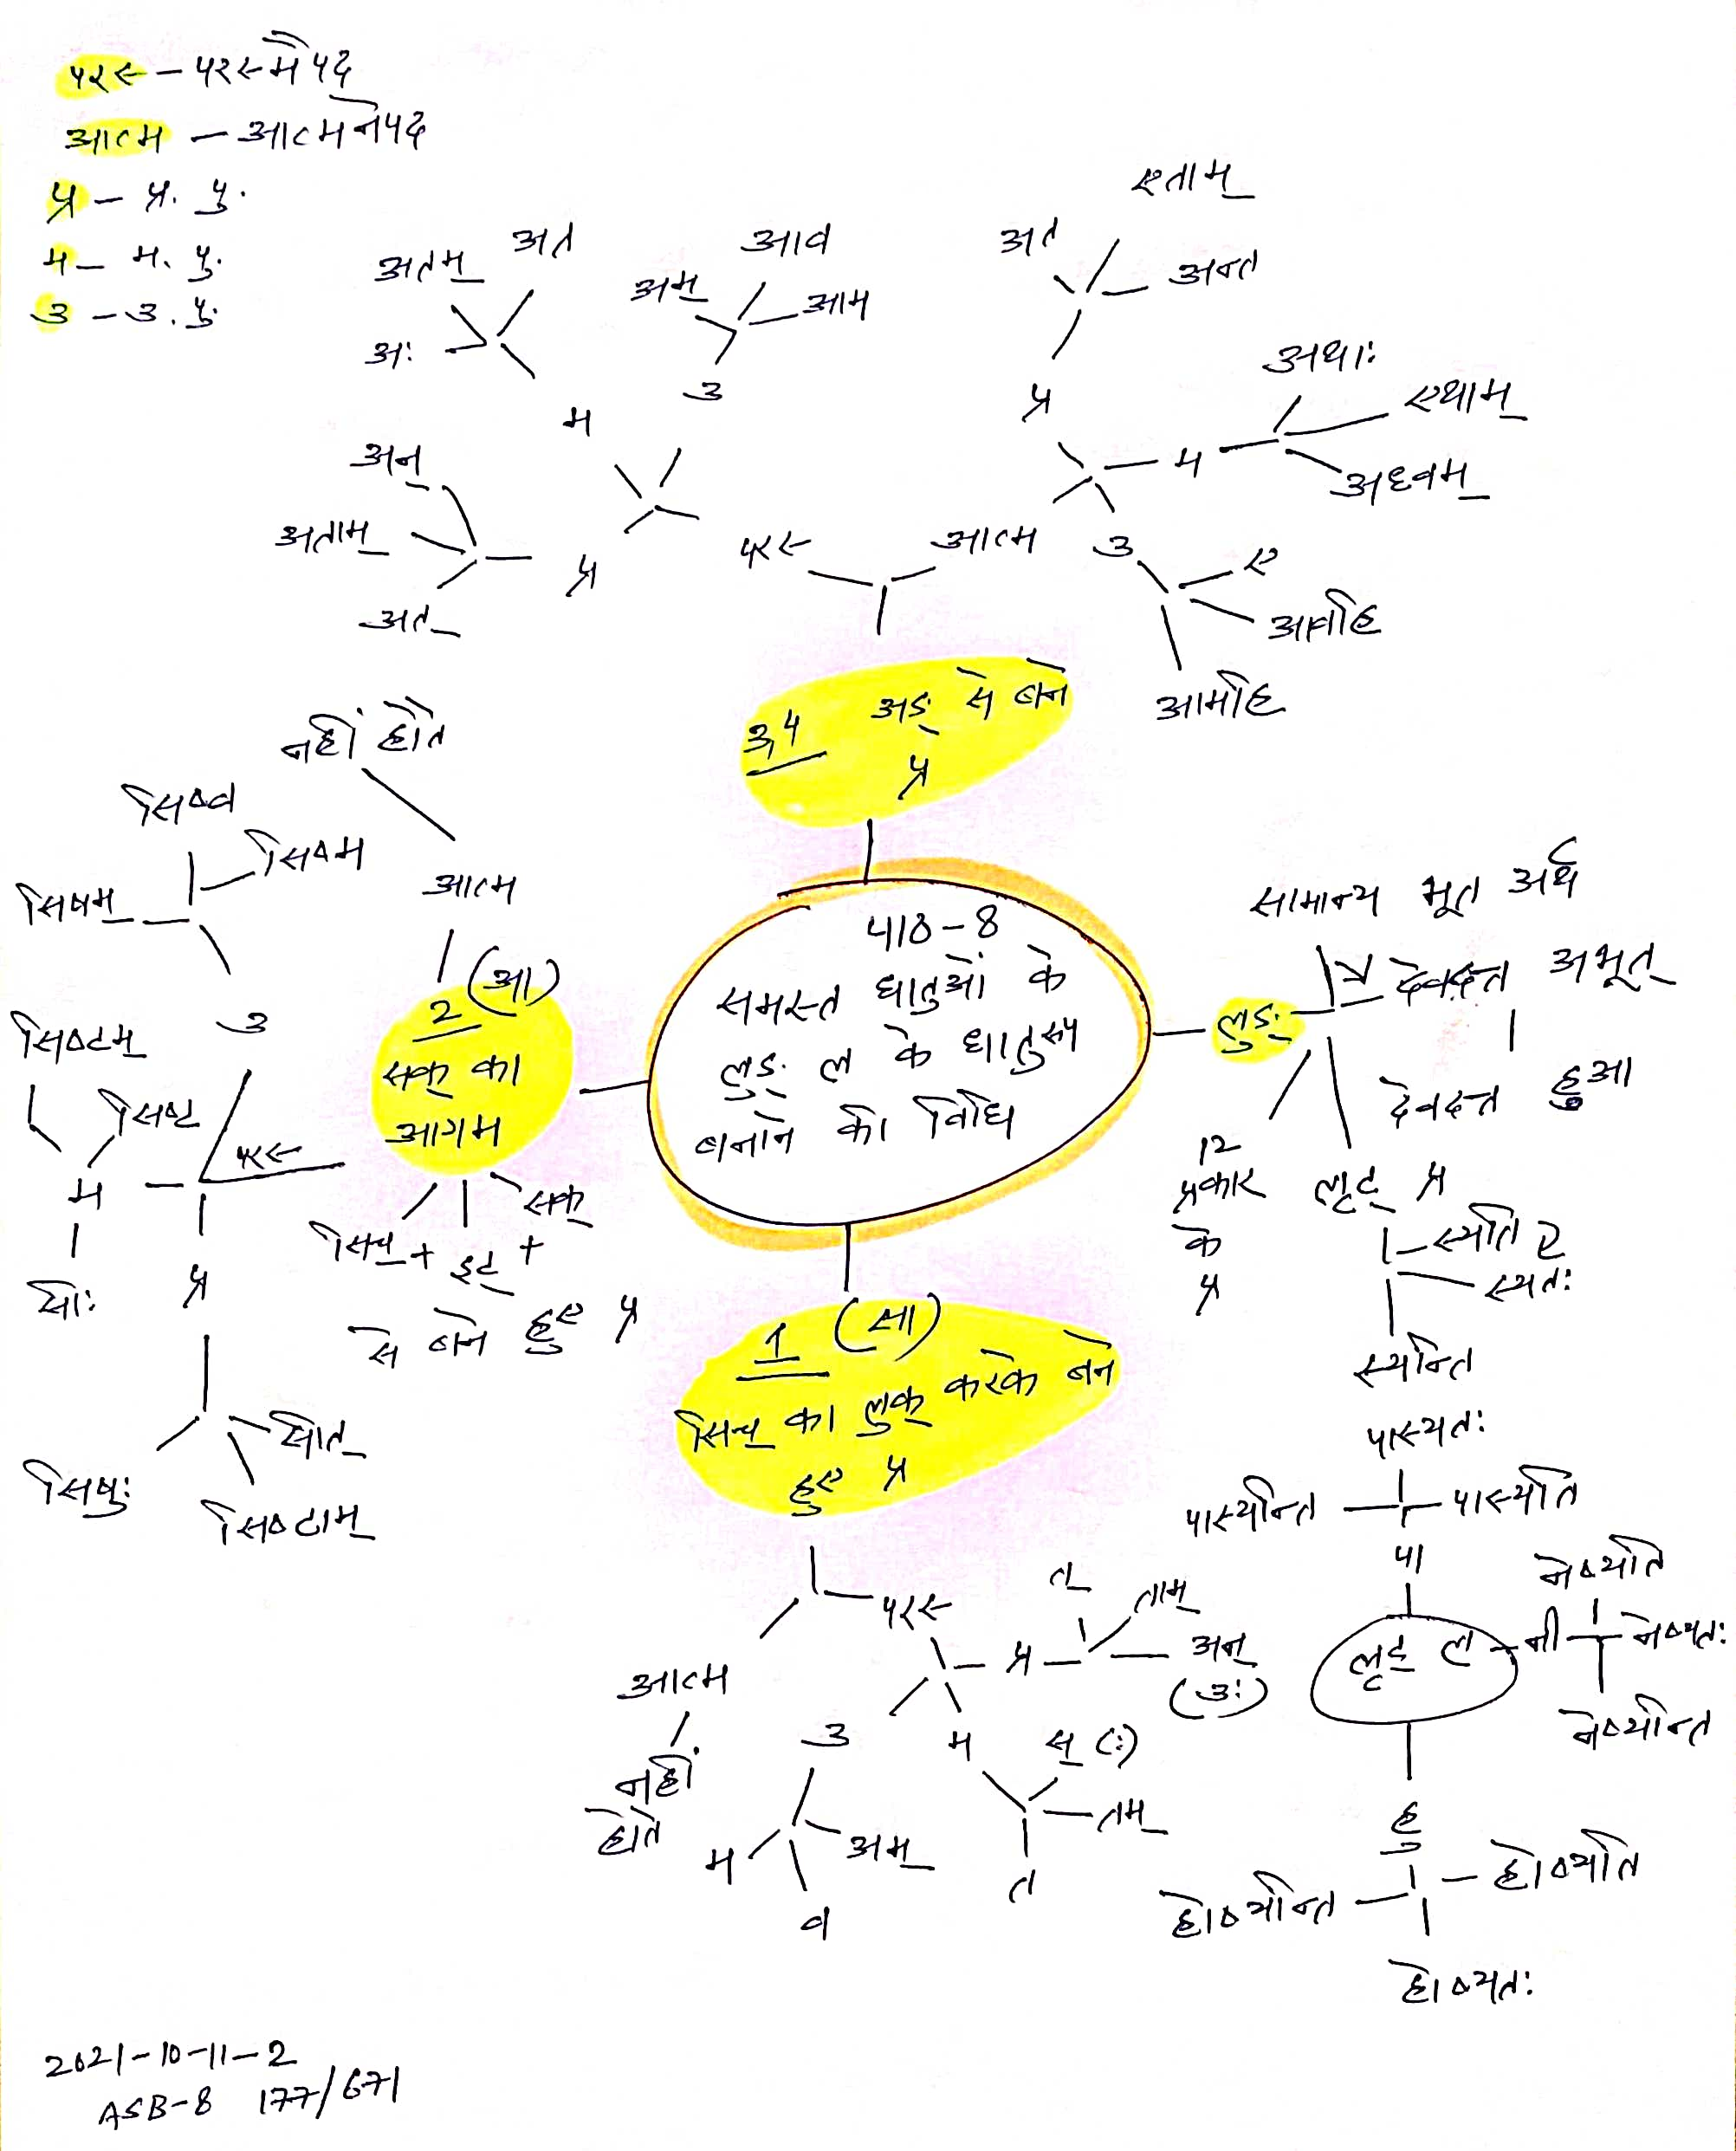 परस्  - परस्मैपद
आत्म - आत्मनेपद
प्र - प्र. पु.
म - म. पु.
उ - उ. पु.
अतम्
अत
अः
म
अम्
आव
आम
उ
अन्
अताम्
अत्
प्र
परस्
आत्म
अत
एताम्
अन्त
प्र
म
अथाः
एथाम्
अध्वम्
उ
ए
आवहि
आमहि
3,4 अङ् से बने
प्र
नहीं होते
आत्म
सिष्व
सिष्म
सिषम्
उ
सिष्टम्
सिष्ट
म
सीः
परस्
प्र
सीत्
सिष्टाम्
सिषुः
2 (आ)
सक् का
आगम
सिच् + इट् + सक्
से बने हुए प्र
पाठ-8
समस्त धातुओं के
लुङ् ल के धातुरूप
बनाने की विधि
लुङ्
सामान्य भूत अर्थ
देवदत्त अभूत्
देवदत्त हुआ
12
प्रकार
के
प्र
लृट् प्र
स्यति
स्यतः
स्यन्ति
1 (सा)
सिच् का लुक् करके बने
हुए प्र
परस्
आत्म
नहीं
होते
प्र
त्
ताम्
अन्
(उः)
म
स् (ः)
तम्
त
उ
अम्
व
म
पास्यतः
पास्यन्ति
पास्यति
पा
लृट् ल
नी
नेष्यति
नेष्यतः
नेष्यन्ति
हु
होष्यति
होष्यन्ति
होष्यतः
2021-10-11-2
ASB-8 177/671